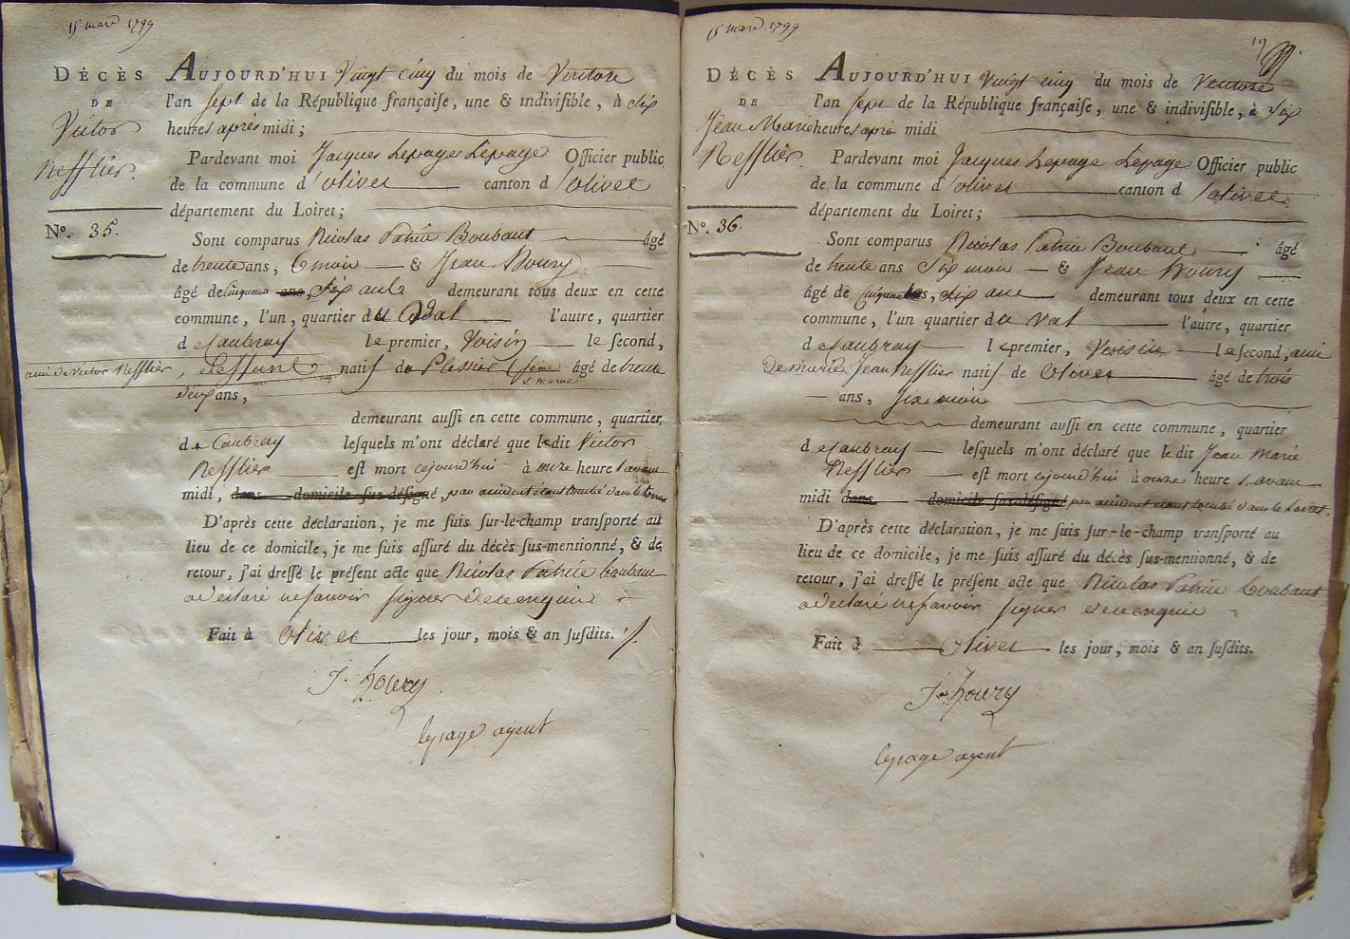 15 mars 1799
DÉCÈS
DE
Victor
Nefflier.
N°. 35.
AUJOURD'HUI Vingt cinq du mois de Ventose
l'an sept de la République françaiſe, une & indiviſible, à six
heures après midi;
Pardevant moi Jacques Lepages Lepage Officier public
de la commune d'olivet canton d'olivet
département du Loiret;
Sont comparus Nicolas Boubaut âgé
de trente ans, 6 mois & Jean
âgé de Cinquante ans, six ans demeurant tous deux en cette
commune, l'un, quartier du Val l'autre, quartier
de Caubray le premier, Voisin le second,
ami de Victor Nefflier, natif de Plessier âgé de trente
ans,
demeurant auſſi en cette commune, quartier
de Caubray leſquels m'ont déclaré que ledit Victor
Nefflier eſt mort cejourd'hui à onze heure d'avant
midi, dans domicile sus-désigné, par accident étant tombé dans le
D'après cette déclaration, je me ſuis ſur-le-champ tranſporté au
lieu de ce domicile, je me ſuis aſſuré du décès ſus-mentionné, & de
retour, j'ai dreſſé le préſent acte que Nicolas Boubaut
a déclaré ne savoir signer de ce enquis
Fait à Olivet les jour, mois & an ſuſdits.
J. houry
lepage agent
15 mars 1799
19
DÉCÈS
DE
Jean Marie
Nefflier.
N°. 36.
AUJOURD'HUI Vingt cinq du mois de Ventose
l'an sept de la République françaiſe, une & indiviſible, à six
heures après midi
Pardevant moi Jacques Lepage Lepage Officier public
de la commune d'olivet canton d'olivet
département du Loiret;
Sont comparus Nicolas Boubaut âgé
de trente ans six mois & Jean houry
âgé de Cinquante ans, six ans demeurant tous deux en cette
commune, l'un quartier du val l'autre, quartier
de Caubray le premier, Voisin le ſecond, ami
de marie Jean Nefflier natif de Olivet âgé de trois
ans, six mois
demeurant auſſi en cette commune, quartier
de Caubray leſquels m'ont déclaré que ledit Jean Marie
Nefflier eſt mort cejourd'hui à onze heure d'avant
midi dans domicile sus-désigné par accident étant tombé dans le Loiret.
D'après cette déclaration, je me ſuis ſur-le-champ tranſporté au
lieu de ce domicile, je me ſuis aſſuré du décès ſus-mentionné, & de
retour, j'ai dreſſé le préſent acte que Nicolas Boubaut
a déclaré ne savoir signer de ce enquis
Fait à Olivet les jour, mois & an ſuſdits.
J. houry
lepage agent